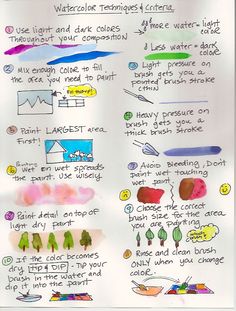 Watercolor Techniques & Criteria
① Use light and dark colors
throughout your composition
more water = light
color
↓ Less water = dark
color
② Mix enough color to fill
the area you need to paint
③ Light pressure on
brush gets you a
brush stroke
(thin)
④ Heavy pressure on
brush gets you a
thick brush stroke
⑤ Paint LARGEST area
First!
⑥ Painting
wet on wet spreads
the paint. Use wisely.
⑦ AVOID Bleeding, Don't
paint wet touching
wet paint
Paint detail on top of
light dry paint
⑨ Choose the correct
brush size for the area
you are painting
⑩ If the color becomes
dry, TIP & DIP - TIP your
brush in the water and
dip it into the paint
Rinse and clean brush
ONLY when you change
color.